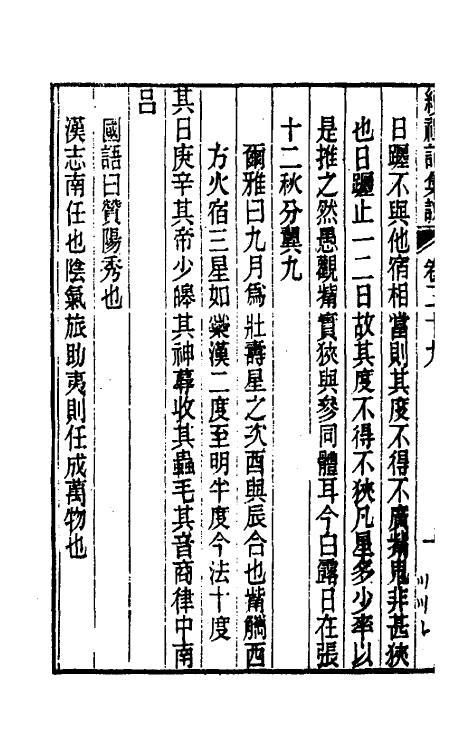 續禮記集說卷二十九
日躔不與他宿相當則其度不得不廣觜鬼非甚狹
也日躔止一二日故其度不得不狹凡星多少率以
是推之然愚觀觜實狹與參同體耳今白露日在張
十二秋分翼九
爾雅曰九月爲壯壽星之次酉與辰合也觜觿西
方火宿三星如漢二度至明半度今法十度
其日庚辛其帝少皞其神蓐收其蟲毛其音商律中南
呂
國語曰贊陽秀也
漢志南任也陰氣旅助夷則任成萬物也